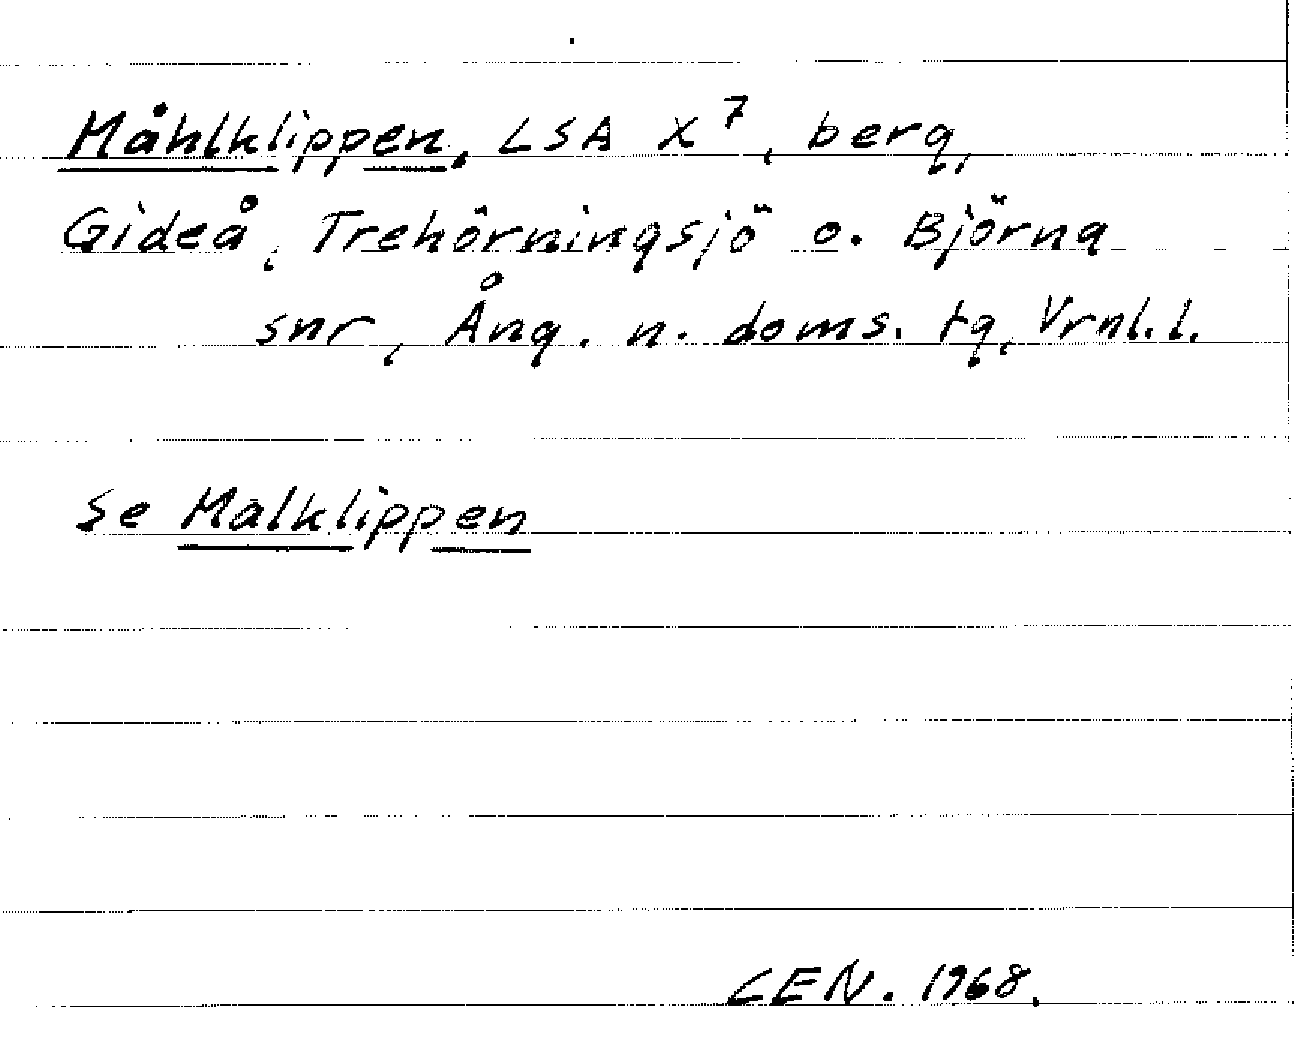 Måhlklippen, LSA X⁷, berg,
Gideå, Trehörningsjö o. Björna
snr, Ång. n. doms. tg, Vrnl. l.
Se Malklippen
CEN. 1968.